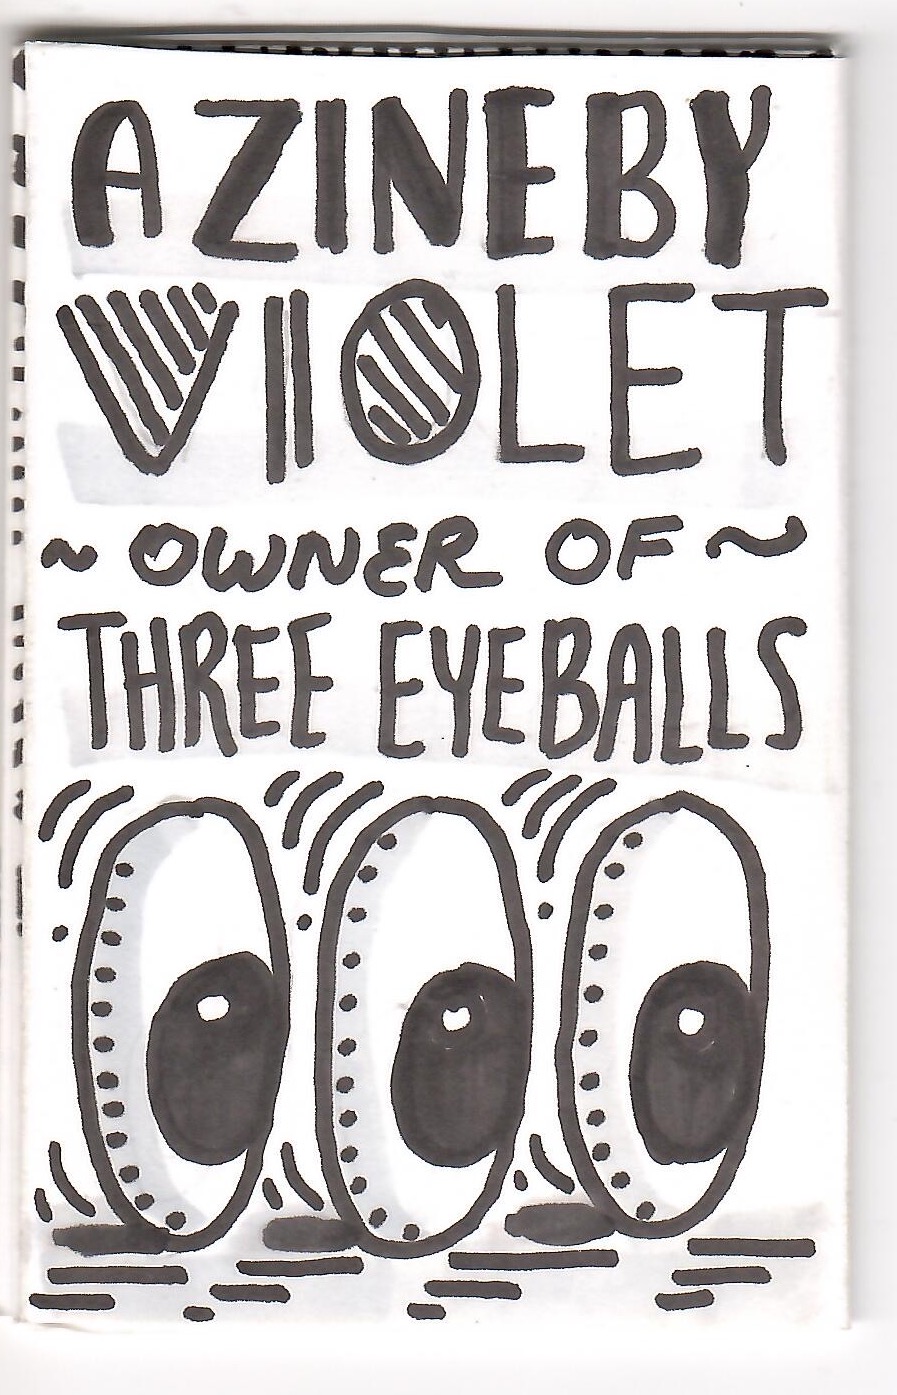 A ZINE BY
VIOLET
~ OWNER OF ~
THREE EYEBALLS